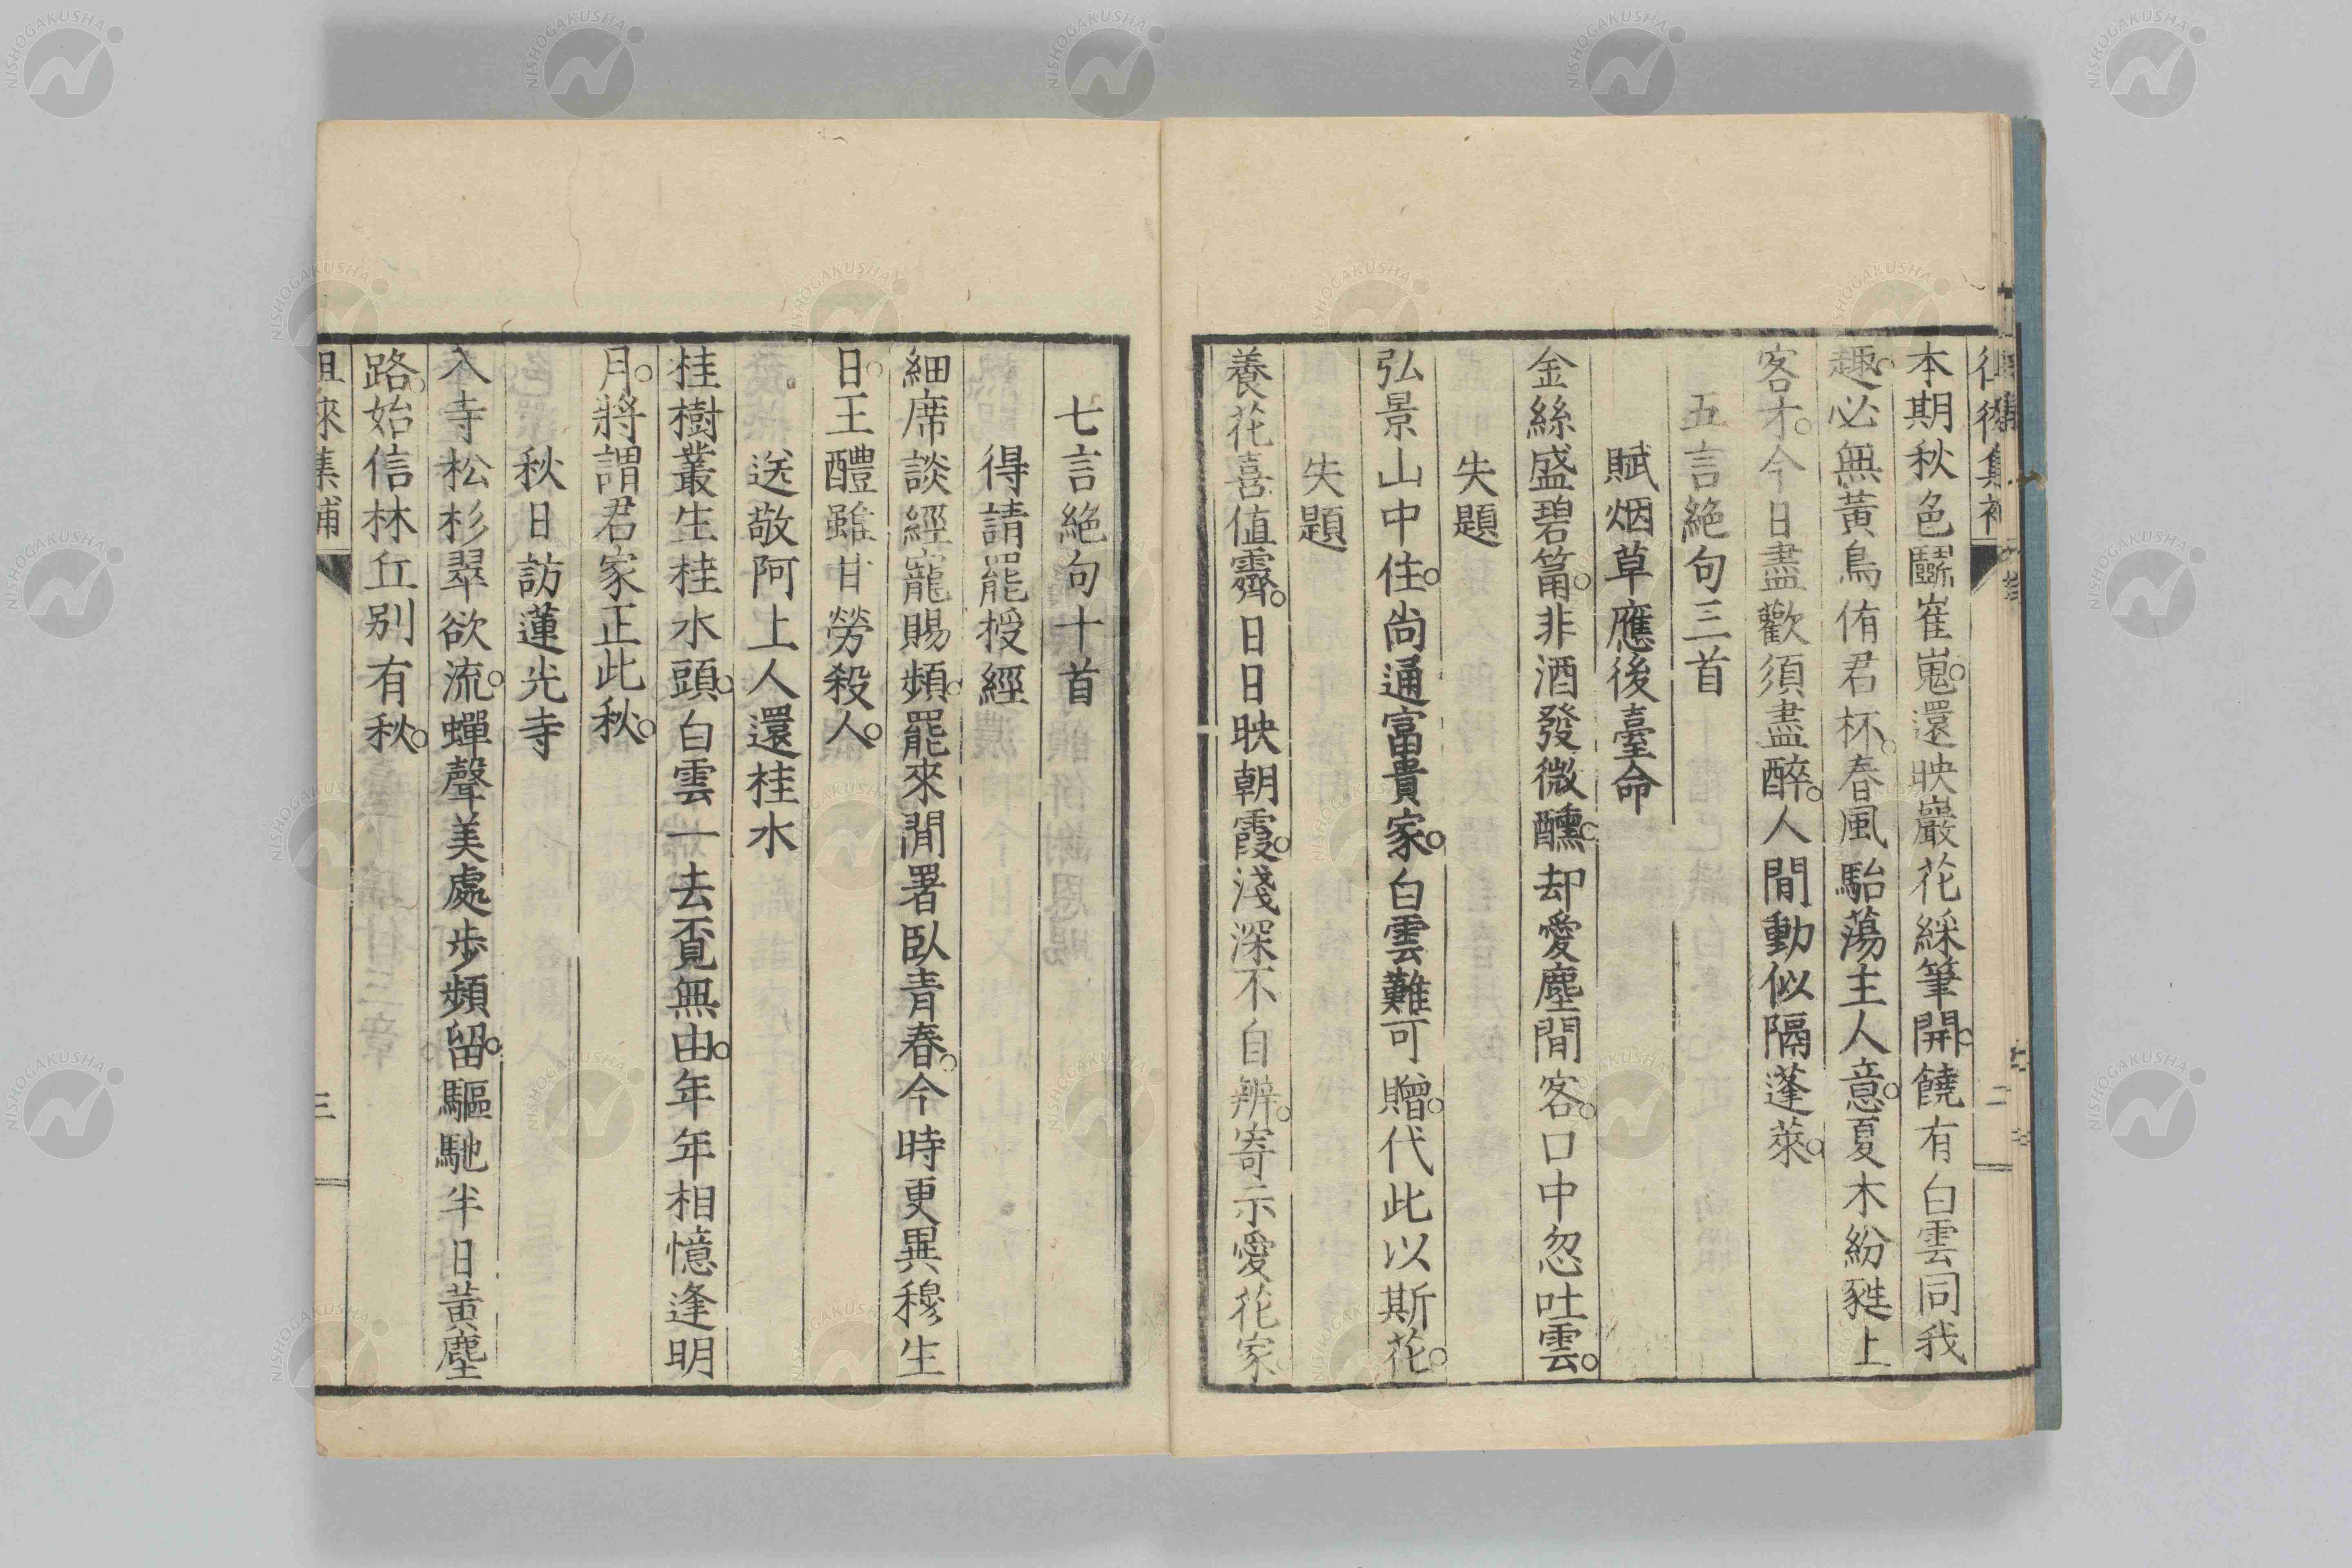 本期秋色鬭崔嵬。還映巖花綵筆開。饒有白雲同我
趣。必無黃鳥侑君杯。春風駘蕩主人意。夏木紛甤上
客才。今日盡歡須盡醉。人間動似隔蓬萊。
五言絕句三首
賦烟草應後臺命
金絲盛碧筩。非酒發微醺。却愛塵間客。口中忽吐雲。
失題
弘景山中住。尙通富貴家。白雲難可贈。代此以斯花。
失題
養花喜值霽。日日映朝霞。淺深不自辨。寄示愛花家。
七言絕句十首
得請罷授經
細席談經寵賜頻。罷來閒署臥青春。今時更異穆生
日。王醴雖甘勞殺人。
送敬阿上人還桂水
桂樹叢生桂水頭。白雲一去覔無由。年年相憶逢明
月。將謂君家正此秋。
秋日訪蓮光寺
入寺松杉翠欲流。蟬聲美處步頻留。驅馳半日黃塵
路。始信林丘別有秋。
徂徠集補
三
NISHOGAKUSHA